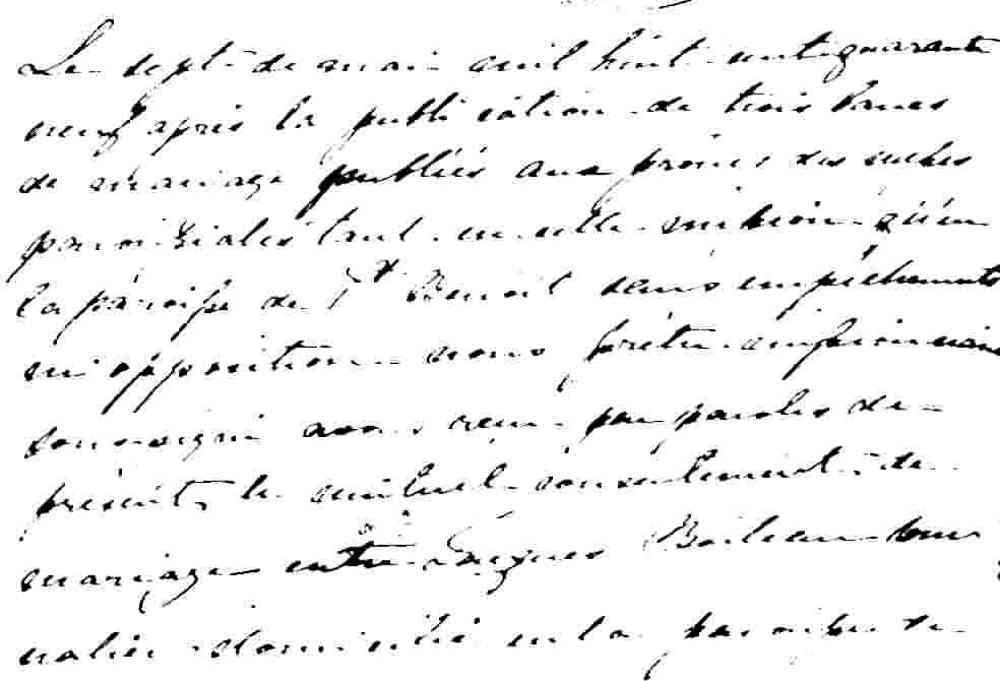 Le sept de mai mil huit cent quarante
neuf après la publication de trois bancs
de mariage publiés aux prônes des messes
paroissiales tant en cette mission qu'en
la paroisse de St Benoit sans empêchements
ni opposition nous prêtre missionnaire
soussigné avons reçu par paroles de
présent, le mutuel consentement de
mariage entre Jacques Boileau jour
nalier domicilié en la paroisse de